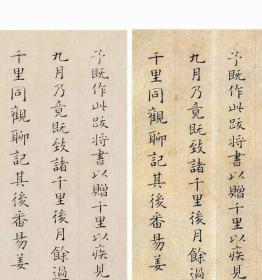 予既作此跋将書以贈千里以疾見
九月乃竟既致諸千里後月餘過
千里同觀聊記其後番昜姜
予既作此跋将書以贈千里以疾見
九月乃竟既致諸千里後月餘過
千里同觀聊記其後番昜姜